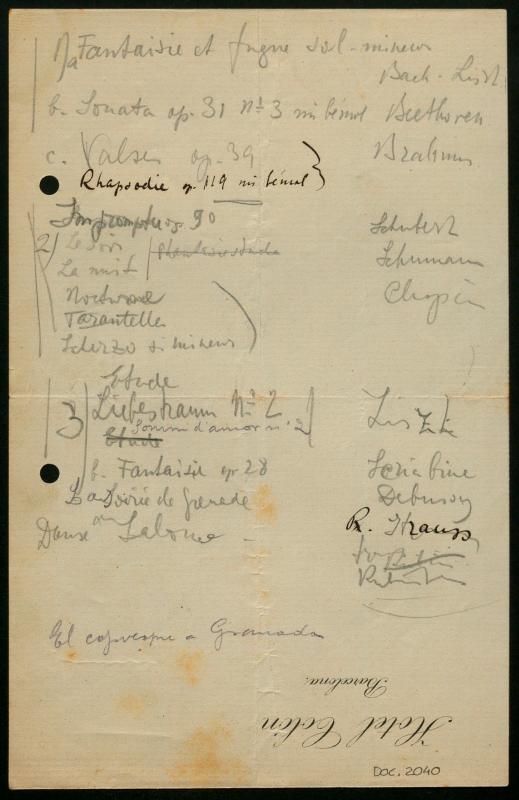 1) a Fantaisie et fugue sol-mineur
Bach-Liszt
b. Sonata op. 31 nº 3 mi bémol Beethoven
c. Valses op. 39 Brahms
Rhapsodie op. 119 mi bémol
Impromptu op. 90 Schubert
2) Le soir Phantasiestucke Schumann
La nuit
Nocturne Chopin
Tarantelle
Scherzo si mineur
Etude
3) Liebestraum Nº 2 Liszt
Etude Somni d'amor nº 2
b. Fantaisie op 28 Scriabine
Soirée de Grenade Debussy
Danse Salome R. Strauss
Rubinstein
El capvespre a Granada
Hotel Colón
Barcelona.
DOC. 2040